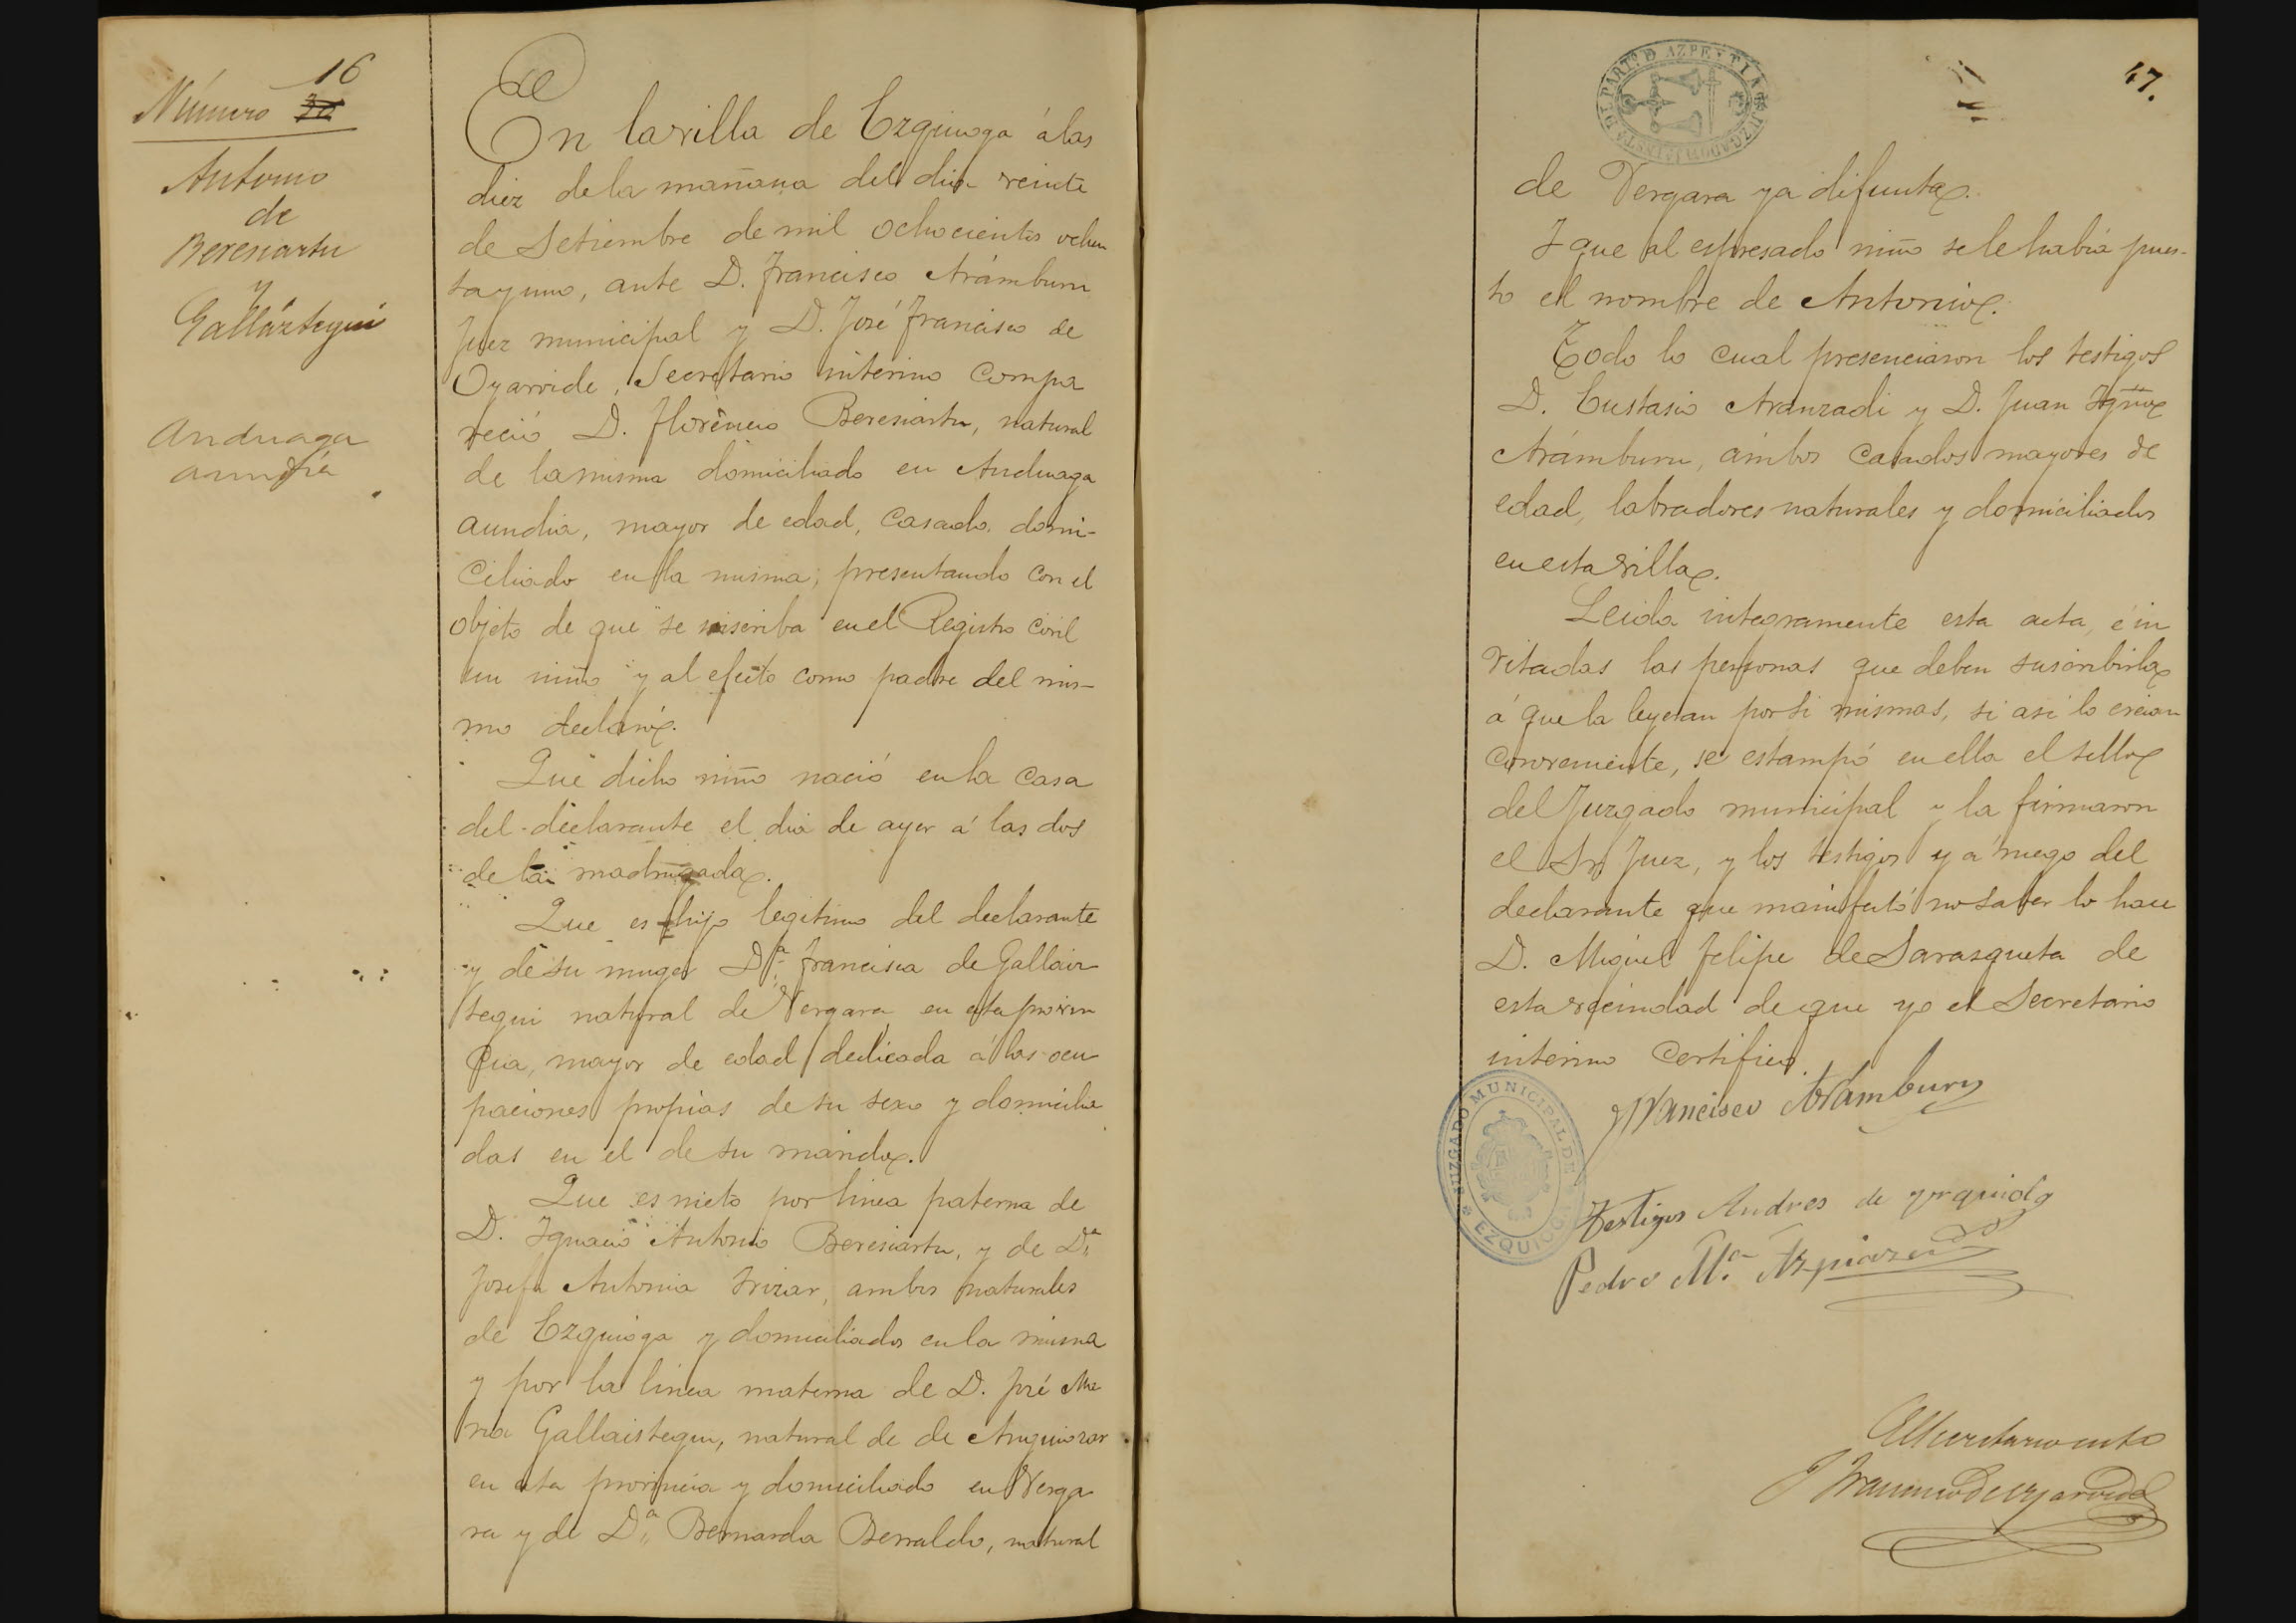 16
Número 30
Antonio
de
Beresiartu
y
Gallaztegui
Anduaga
aundía
En la villa de Ezquioga á las
diez de la mañana del dia veinte
de Setiembre de mil ochocientos ochen
ta y uno, ante D. Francisco Arámburu
Juez municipal y D. José Francisco de
Oyarvide, Secretario interino compa
reció D. Florencio Beresiartu, natural
de la misma domiciliado en Anduaga
aundia, mayor de edad, casado domi-
ciliado en la misma; presentando con el
objeto de que se inscriba en el Registro civil
un niño y al efecto como padre del mis-
mo declaró.
Que dicho niño nació en la casa
del declarante el dia de ayer á las dos
de la madrugada.
Que es hijo legitimo del declarante
y de su muger Dª Francisca de Gallaiz
tegui natural de Vergara en esta provin
cia, mayor de edad dedicada á las ocu
paciones propias de su sexo y domicilia
das en el de su marido.
Que es nieto por linea paterna de
D. Ignacio Antonio Beresiartu, y de Dª
Josefa Antonia Irizar, ambos naturales
de Ezquioga y domiciliados en la misma
y por la linea materna de D. José Ma
ria Gallaistegui, natural de de Anguiozar
en esta provincia y domiciliado en Verga
ra y de Dª Bernarda Berraldo, natural
JUZGADO DE 1ª INSTª DEL PARTº D AZPEYTIA
47.
de Vergara ya difunta.
Y que al espresado niño se le habia pues-
to el nombre de Antonio.
Todo lo cual presenciaron los testigos
D. Eustasio Aranzadi y D. Juan Ygnº
Arámburu, ámbos casados mayores de
edad, labradores naturales y domiciliados
en esta villa.
Leida integramente esta acta, é in
vitadas las personas que deben suscribirla
á que la leyeran por si mismas, si asi lo creian
conveniente, se estampó en ella el sello
del Juzgado municipal y la firmaron
el Sr. Juez, y los testigos y á ruego del
declarante que manifestó no saber lo hace
D. Miguel Felipe de Sarasqueta de
esta vecindad de que yo el Secretario
interino certifico.
Francisco Aramburu
JUZGADO MUNICIPAL DE EZQUIOGA
Testigos Andres de
Pedro Mª Azpiazu
El Secretario intº
Francisco de Oyarvide